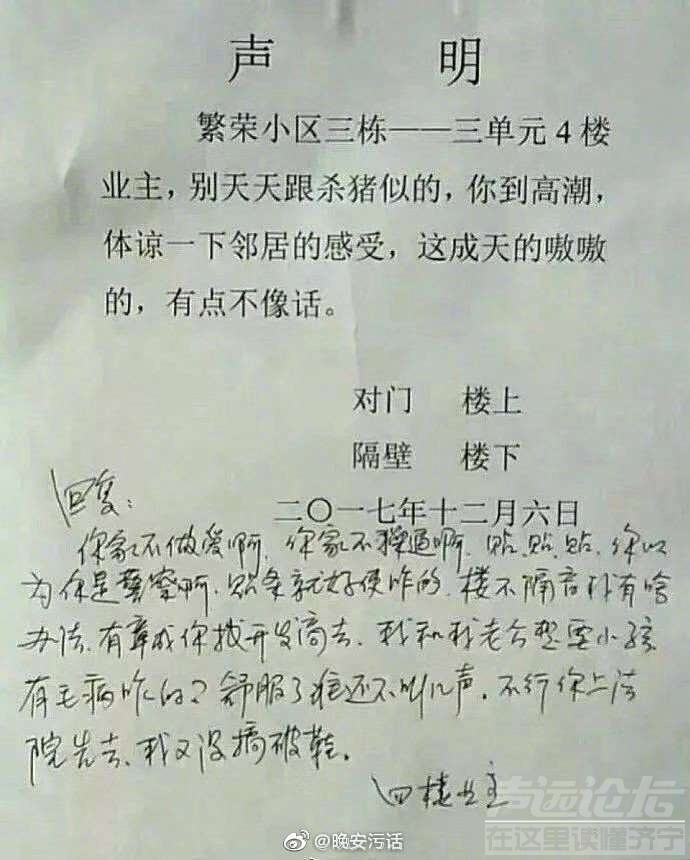 声 明
繁荣小区三栋——三单元4楼
业主，别天天跟杀猪似的，你到高潮，
体谅一下邻居的感受，这成天的嗷嗷
的，有点不像话。
对门 楼上
隔壁 楼下
二〇一七年十二月六日
回复：
你家不做爱啊，你家不操逼啊，贴、贴、贴、你以
为你是警察啊，贴条就好使咋的，楼不隔音 有啥
办法，有章成你找开发商去，我和我老公想要小孩
有毛病咋的？舒服了 还不叫几声，不行你上法
院告去，我又没搞破鞋。
四楼业主
@晚安污话
声远论坛
在这里读懂济宁